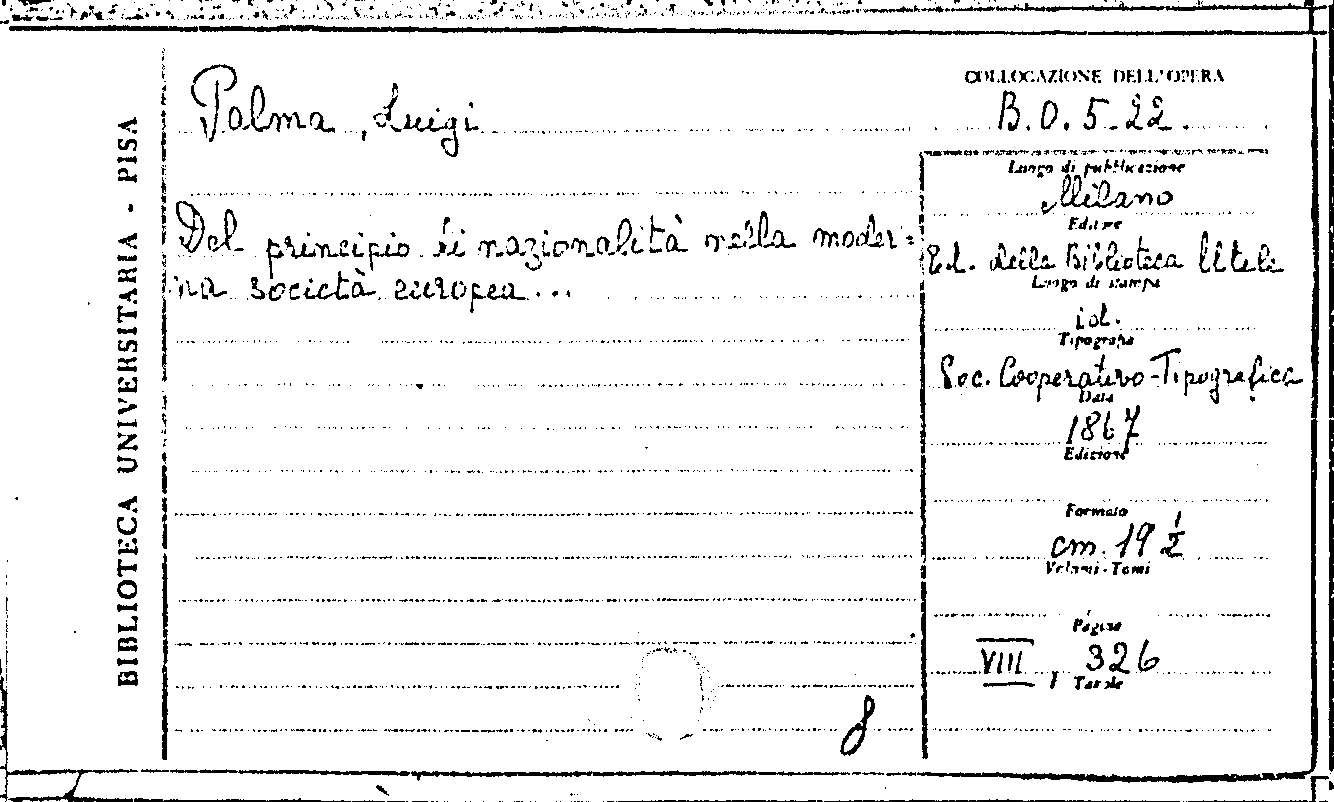 BIBLIOTECA UNIVERSITARIA - PISA
Palma, Luigi
Del principio di nazionalità nella moder=
na società europea...
COLLOCAZIONE DELL'OPERA
B.O.5.22.
Luogo di pubblicazione
Milano
Editore
Ed. della Biblioteca Utile
Luogo di stampa
id.
Tipografia
Soc. Cooperativo-Tipografica
Data
1867
Edizione
Formato
cm. 19 ½
Volumi - Tomi
Pagine
VIII, 326
Tavole